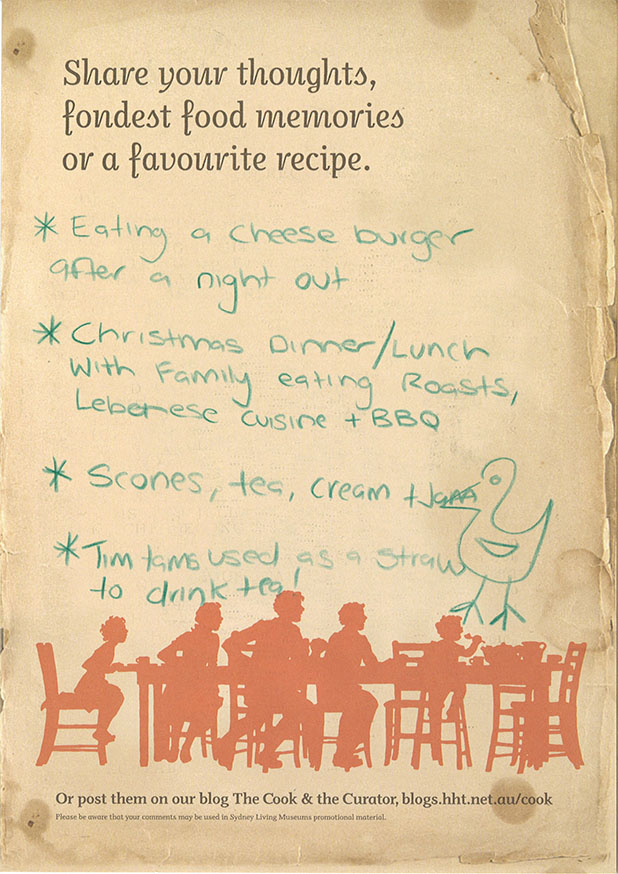 Share your thoughts,
fondest food memories
or a favourite recipe.
* Eating a cheese burger
after a night out
* Christmas Dinner/Lunch
With Family eating Roasts,
Lebenese cuisine + BBQ
* Scones, tea, cream + Jam
* Tim tams used as a straw
to drink tea!
Or post them on our blog The Cook & the Curator, blogs.hht.net.au/cook
Please be aware that your comments may be used in Sydney Living Museums promotional material.